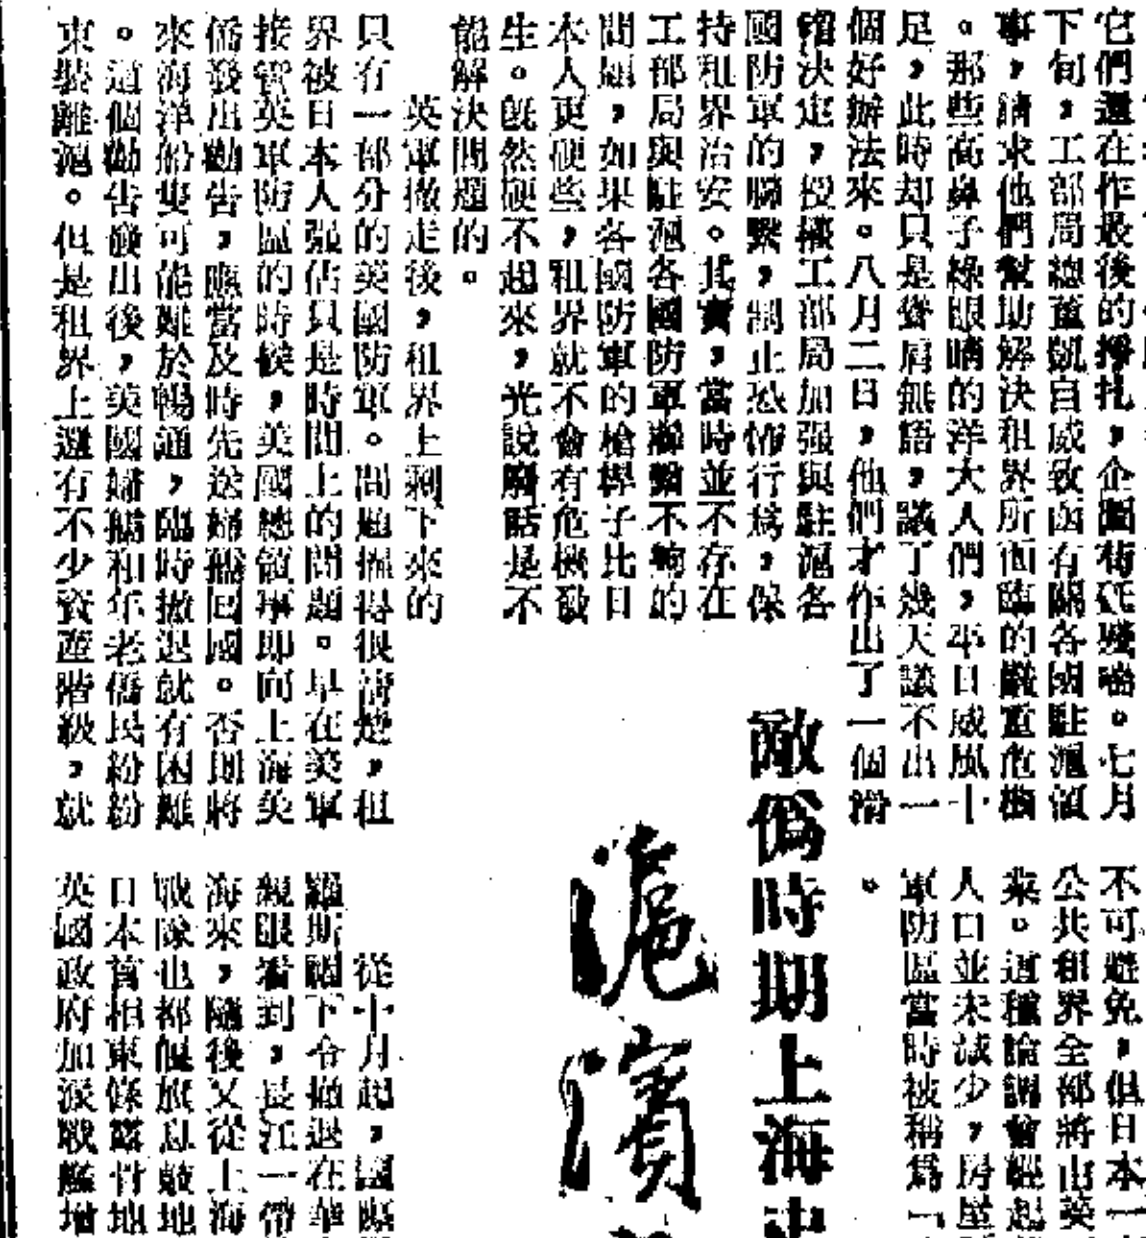 它們還在作最後的掙扎，企圖苟延殘喘。七月
下旬，工部局總董凱自威致函有關各國駐滬領
事，請求他們幫助解決租界所面臨的嚴重危機
。那些高鼻子綠眼睛的洋大人們，平日威風十
足，此時却只是聳肩無語，議了幾天議不出一
個好辦法來。八月二日，他們才作出了一個滑
稽決定，授權工部局加强與駐滬各
國防軍的聯繫，制止恐怖行爲，保
持租界治安。其實，當時並不存在
工部局與駐滬各國防軍聯繫不夠的
問題，如果各國防軍的槍桿子比日
本人更硬些，租界就不會有危機發
生。旣然硬不起來，光說廢話是不
能解決問題的。
英軍撤走後，租界上剩下來的
只有一部分的美國防軍。問題擺得很清楚，租
界被日本人强佔只是時間上的問題。早在美軍
接管英軍防區的時候，美國總領事即向上海美
僑發出勸告，應當及時先送婦孺回國。否則將
來海洋船隻可能難於暢通，臨時撤退就有困難
。這個勸告發出後，美國婦孺和年老僑民紛紛
束裝離滬。但是租界上還有不少資產階級，就
敵僞時期上海
滬濱
不可避免，但日本一
公共租界全部將由英
業。這種論調曾經起
人口並未減少，房屋
軍防區當時被稱爲「
。
從十月起，國際
羅斯福下令撤退在華
親眼看到，長江一帶
海來，隨後又從上海
戰隊也都偃旗息鼓地
日本首相東條露骨地
英國政府加派戰艦增